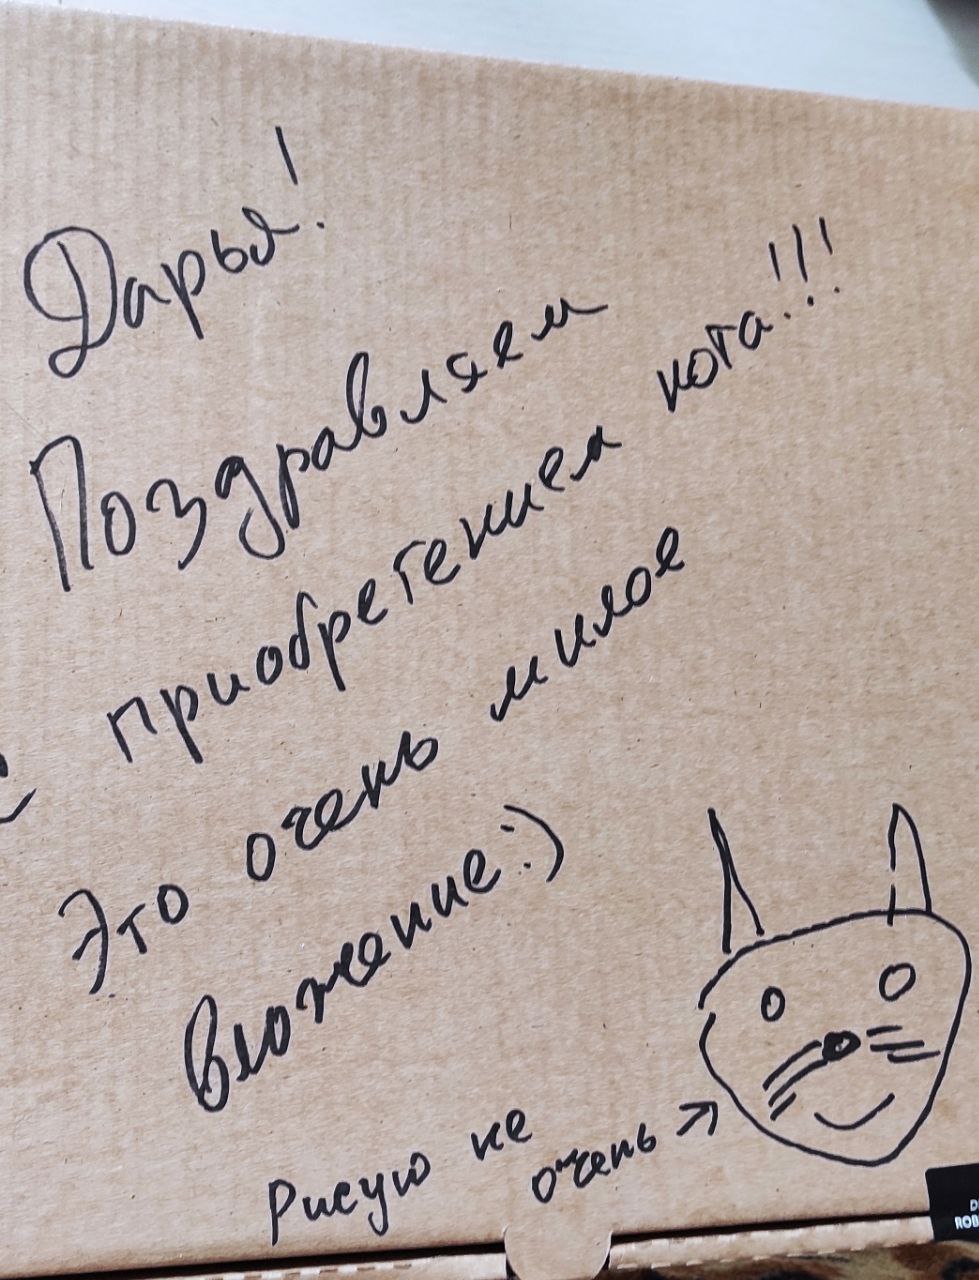 Дарья!
Поздравляем
с приобретением кота!!!
Это очень милое
вложение:)
Рисую не
очень